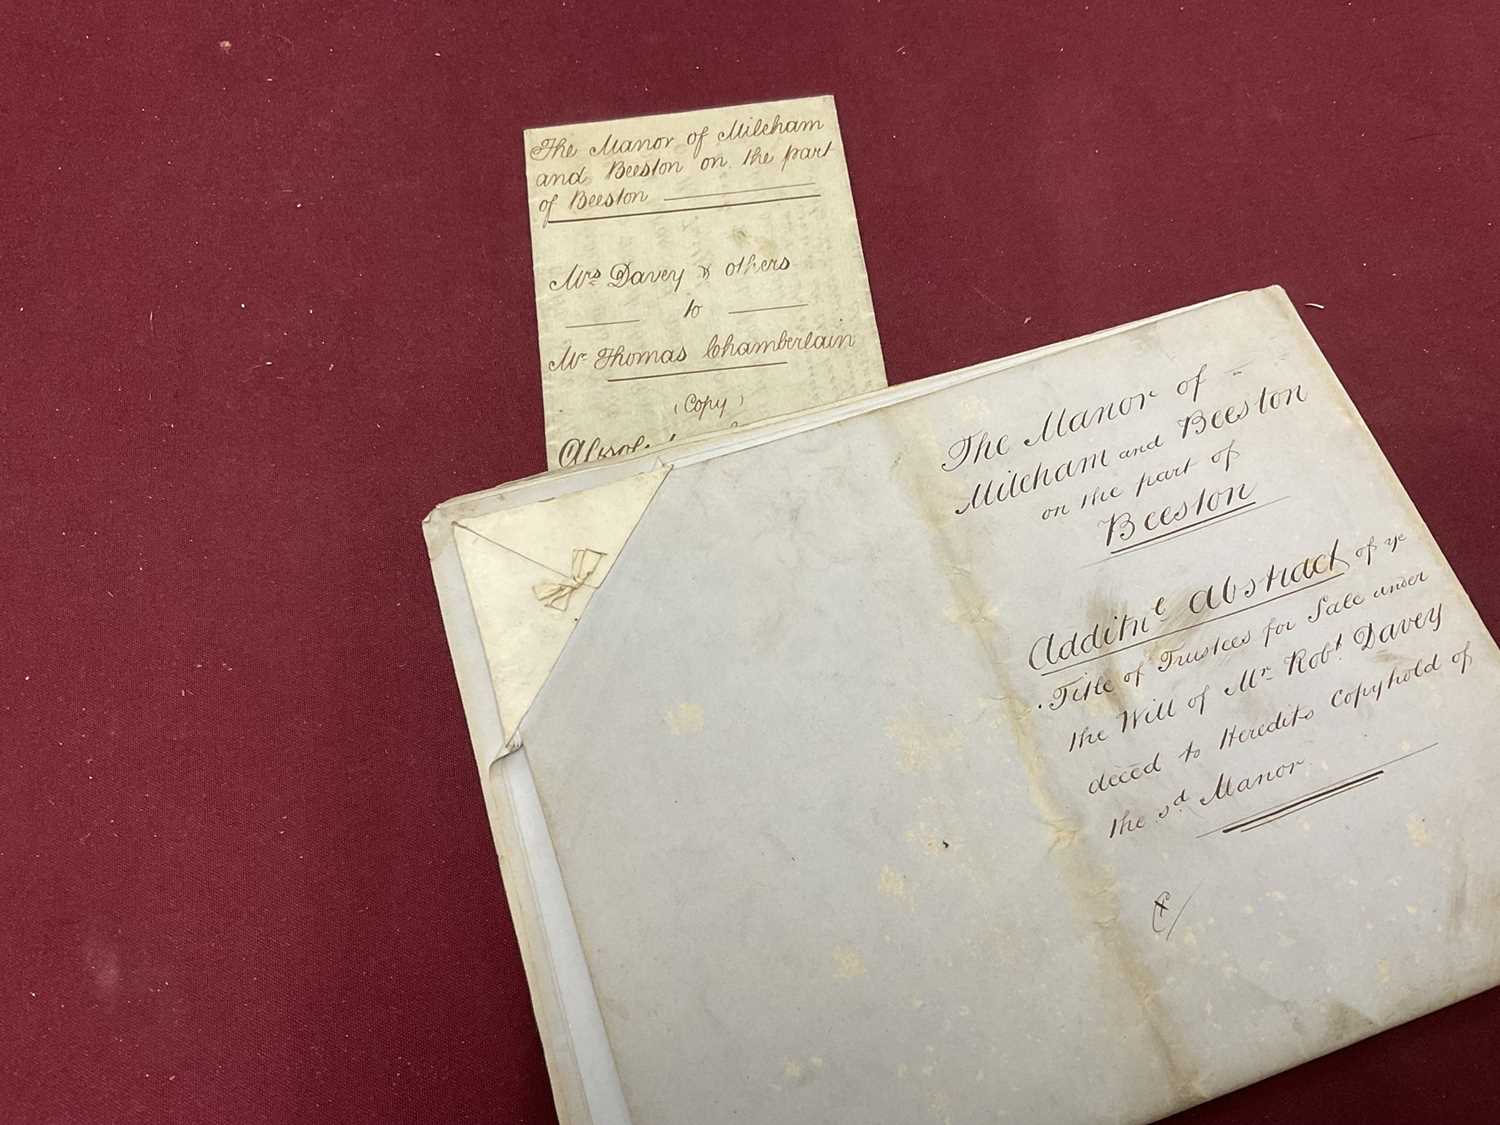 The Manor of Mileham
and Beeston on the part
of Beeston
Mrs Davey & others
to
Mr Thomas Chamberlain
(Copy)
The Manor of
Mileham and Beeston
on the part of
Beeston
Additnl Abstract of ye
Title of Trustees for Sale under
the Will of Mr Robt Davey
deced to Heredits Copyhold of
the sd Manor.